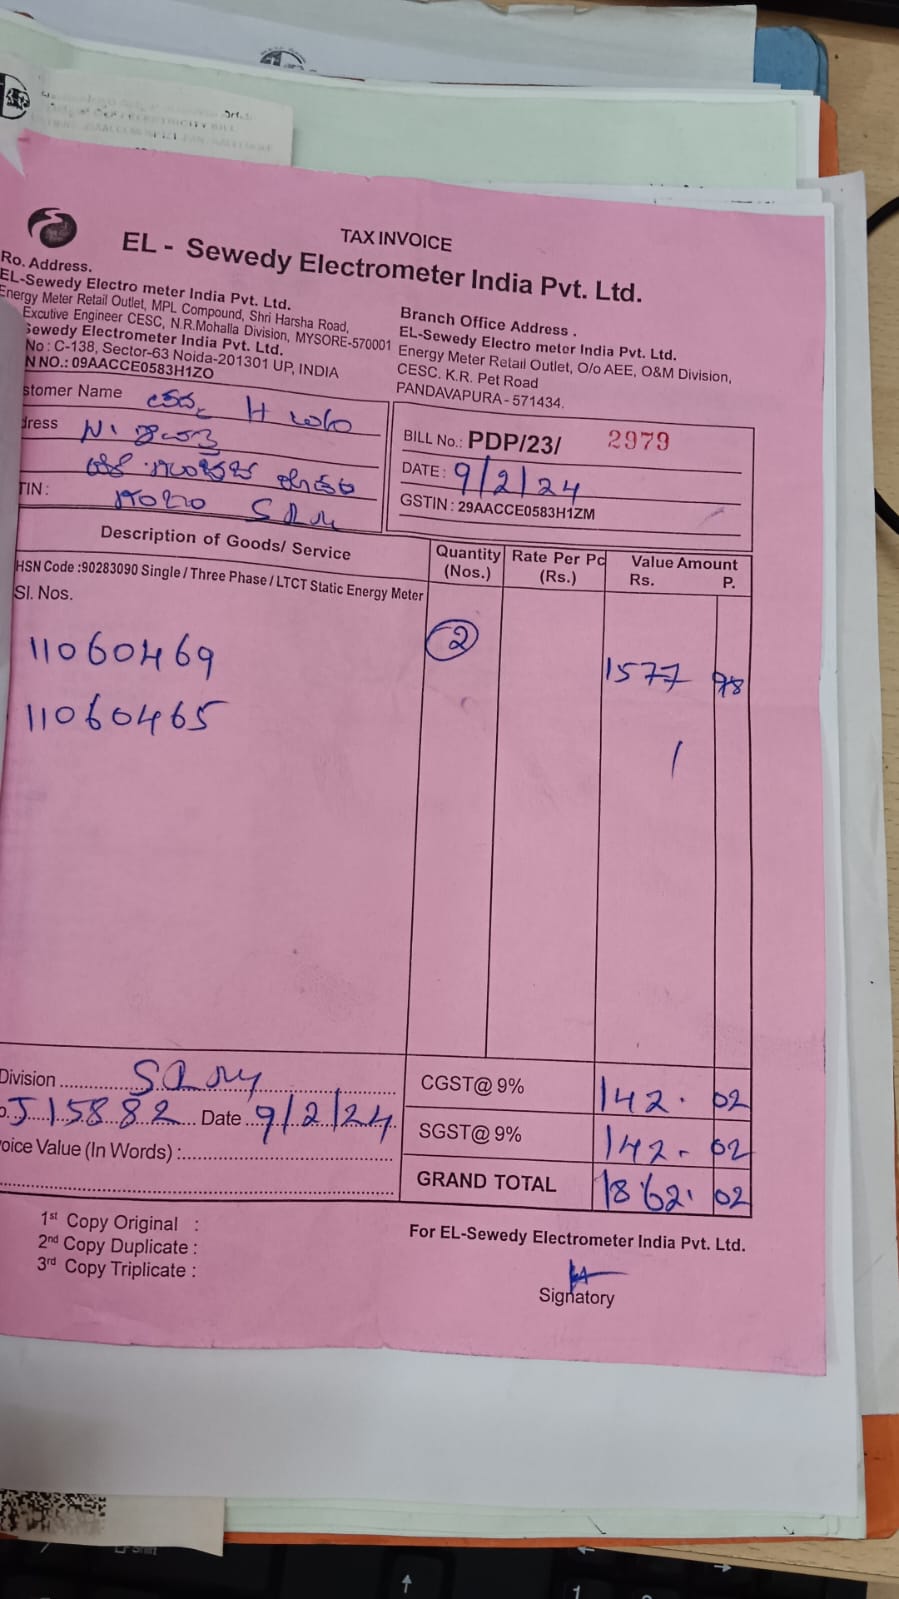 TAX INVOICE
EL - Sewedy Electrometer India Pvt. Ltd.
Ro. Address.
EL-Sewedy Electro meter India Pvt. Ltd.
Energy Meter Retail Outlet, MPL Compound, Shri Harsha Road,
Excutive Engineer CESC, N.R.Mohalla Division, MYSORE-570001
Sewedy Electrometer India Pvt. Ltd.
No : C-138, Sector-63 Noida-201301 UP, INDIA
N NO.: 09AACCE0583H1ZO
Branch Office Address .
EL-Sewedy Electro meter India Pvt. Ltd.
Energy Meter Retail Outlet, O/o AEE, O&M Division,
CESC. K.R. Pet Road
PANDAVAPURA - 571434.
stomer Name H
dress
TIN :
BILL No.: PDP/23/ 2979
DATE : 9/2/24
GSTIN : 29AACCE0583H1ZM
Description of Goods/ Service
Quantity (Nos.)
Rate Per Pc (Rs.)
Value Amount
Rs. P.
HSN Code :90283090 Single / Three Phase / LTCT Static Energy Meter
Sl. Nos.
11060469 2 1577 98
11060465
Division
J15882 Date 9/2/24
oice Value (In Words) :
CGST@ 9% 142. 02
SGST@ 9% 142. 02
GRAND TOTAL 1862. 02
1st Copy Original :
2nd Copy Duplicate :
3rd Copy Triplicate :
For EL-Sewedy Electrometer India Pvt. Ltd.
Signatory